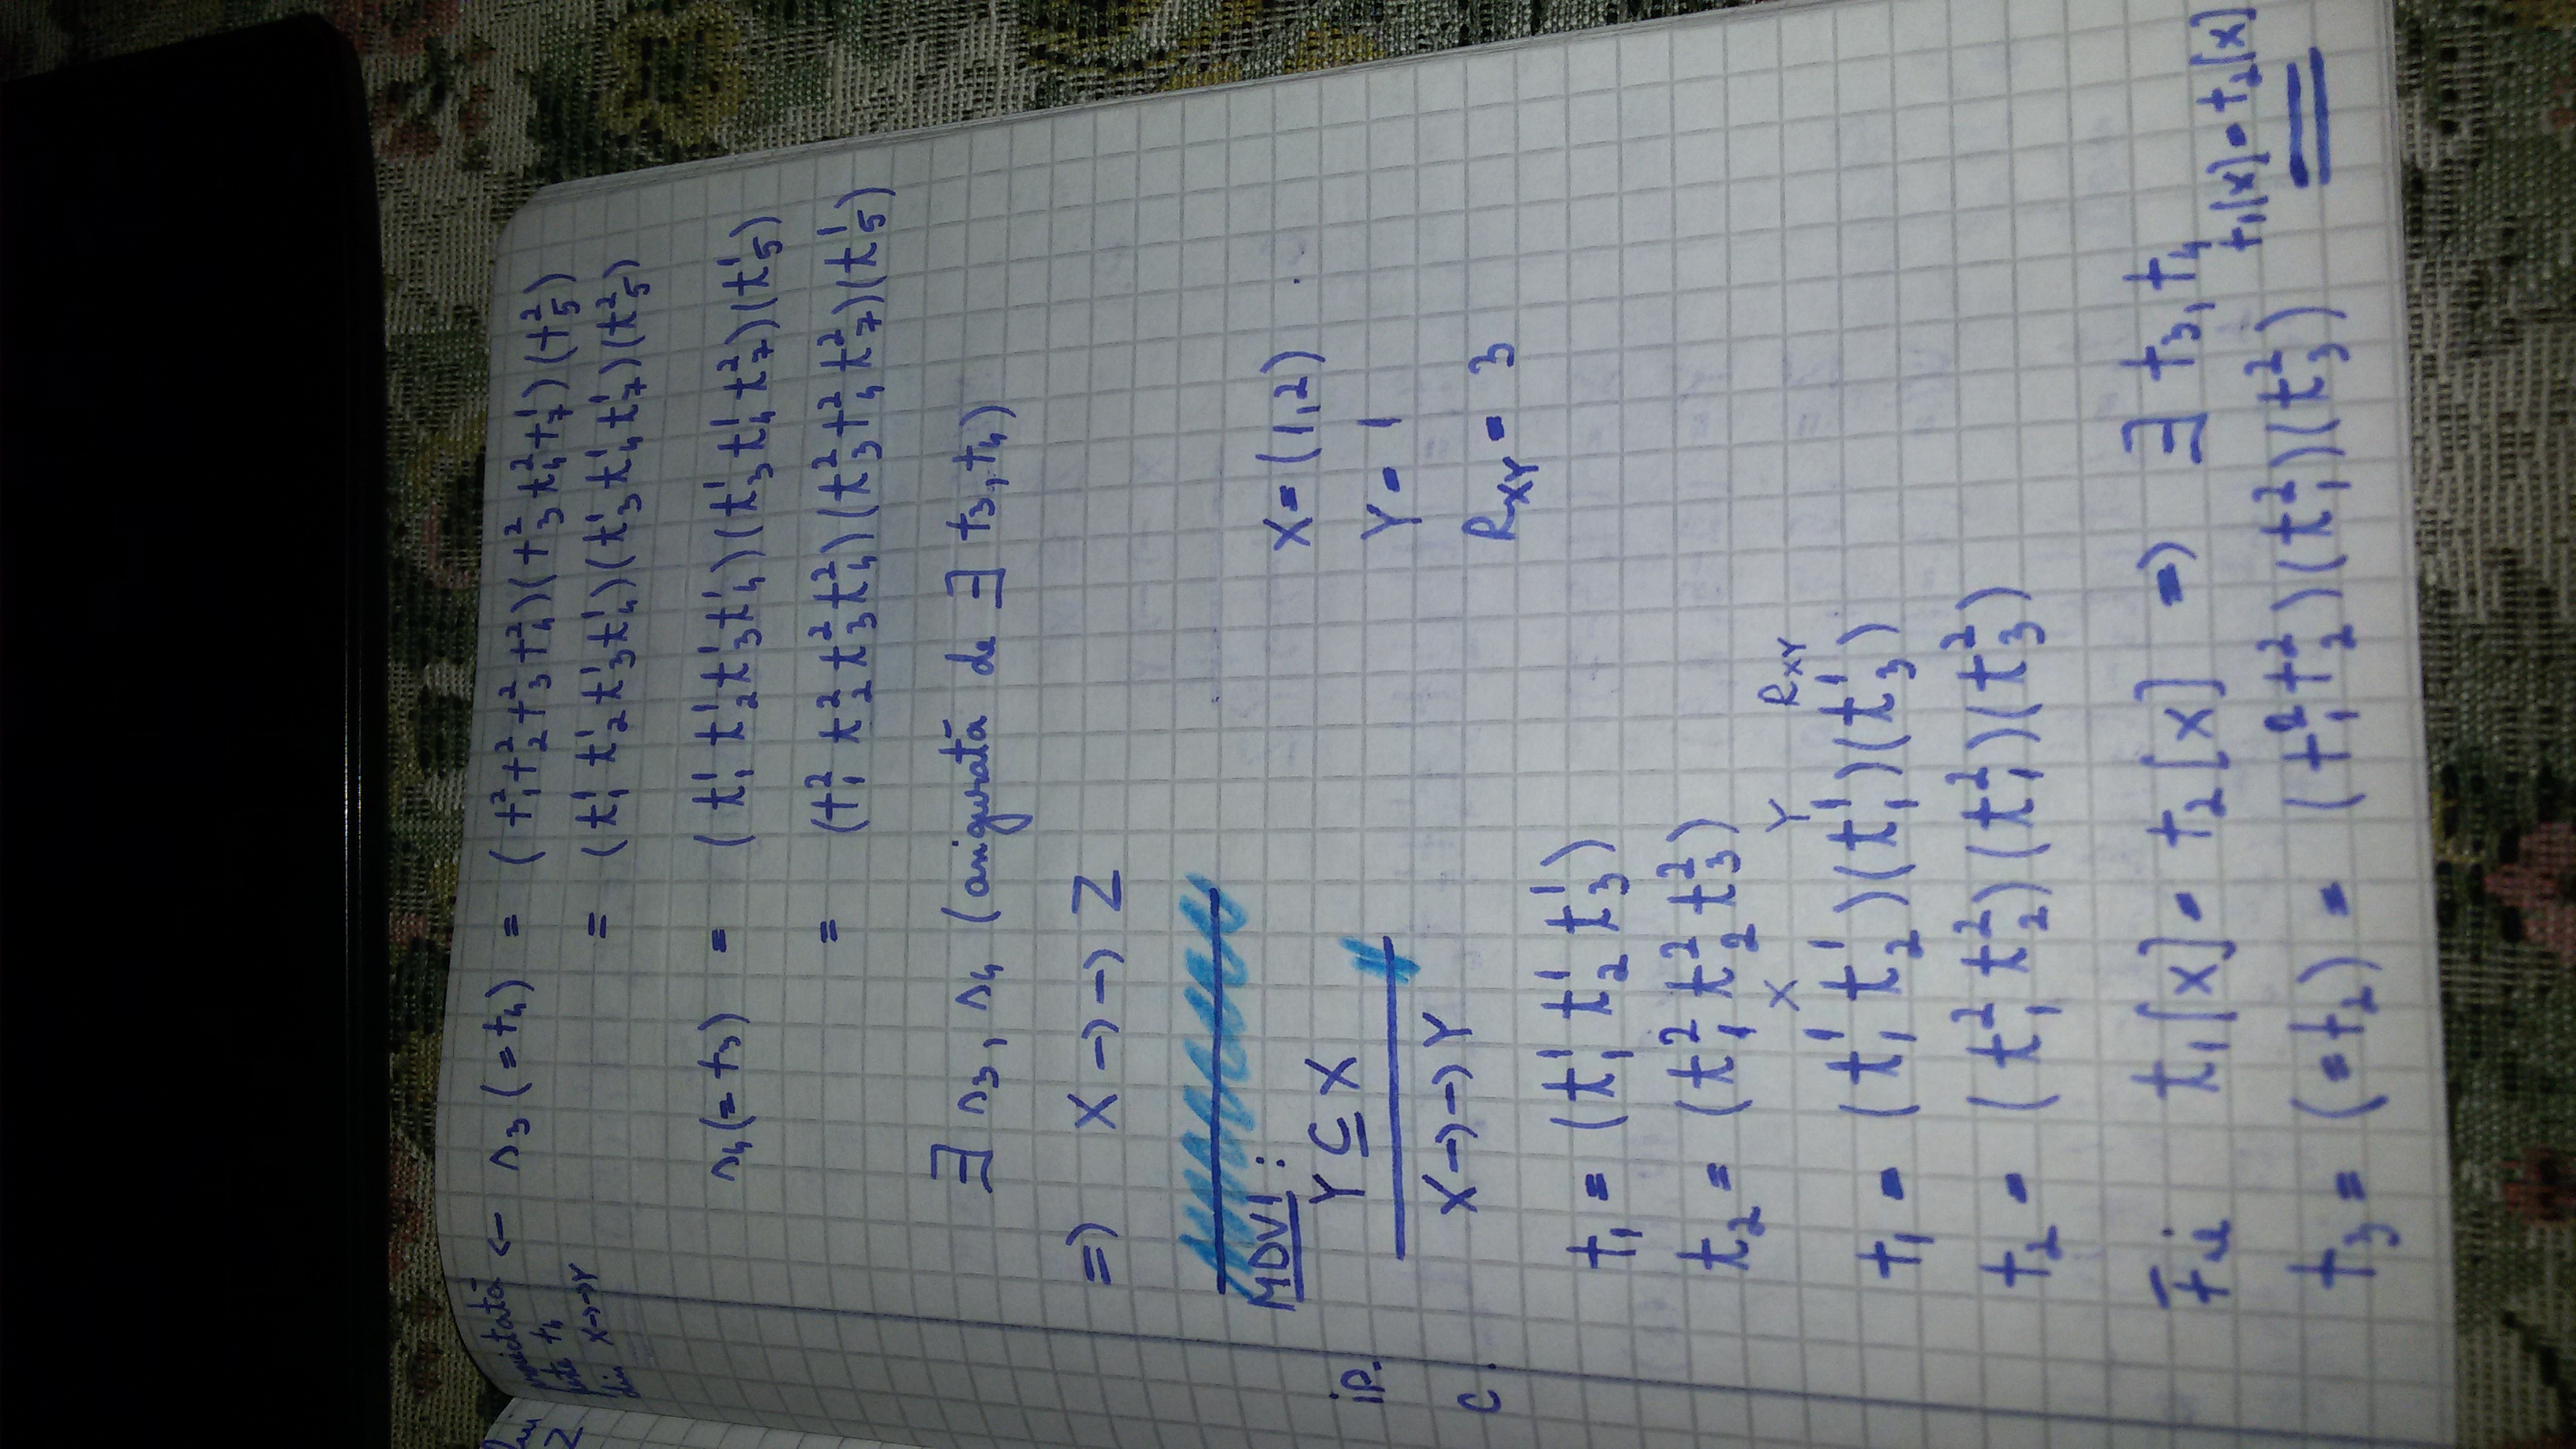 proiectată
este t₄
din X→→Y
← s₃ (= t₄) = (t₁² t₂² t₃² t₄²)(t₃² t₄² t₇¹)(t₅²)
= (t₁¹ t₂¹ t₃¹ t₄¹)(t₃¹ t₄¹ t₇¹)(t₅²)
s₄ (= t₃) = (t₁¹ t₂¹ t₃¹ t₄¹)(t₃¹ t₄¹ t₇²)(t₅¹)
= (t₁² t₂² t₃² t₄²)(t₃² t₄² t₇²)(t₅¹)
∃ s₃, s₄ (asigurată de ∃ t₃, t₄)
=> X →→ Z
MDV1:
ip. Y ⊆ X
c. X →→ Y
X = (1,2)
Y = 1
R_XY = 3
t₁ = (t₁¹ t₂¹ t₃¹)
t₂ = (t₁² t₂² t₃²)
X Y R_XY
t₁ = (t₁¹ t₂¹)(t₁¹)(t₃¹)
t₂ = (t₁² t₂²)(t₁²)(t₃²)
Fie t₁[X] = t₂[X] => ∃ t₃, t₄
t₁[X] = t₂[X]
t₃ = (= t₂) = (t₁² t₂²)(t₁²)(t₃²)